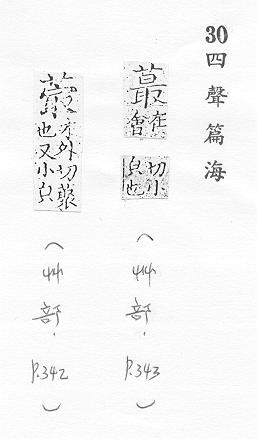 30四聲篇海
蕞在會切小皃也
(艸部．P.343)
才外切聚也又小皃
(艸部．P.342)